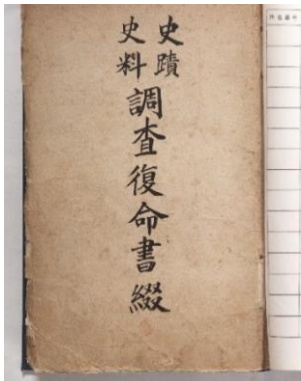 史蹟
史料
調査復命書綴